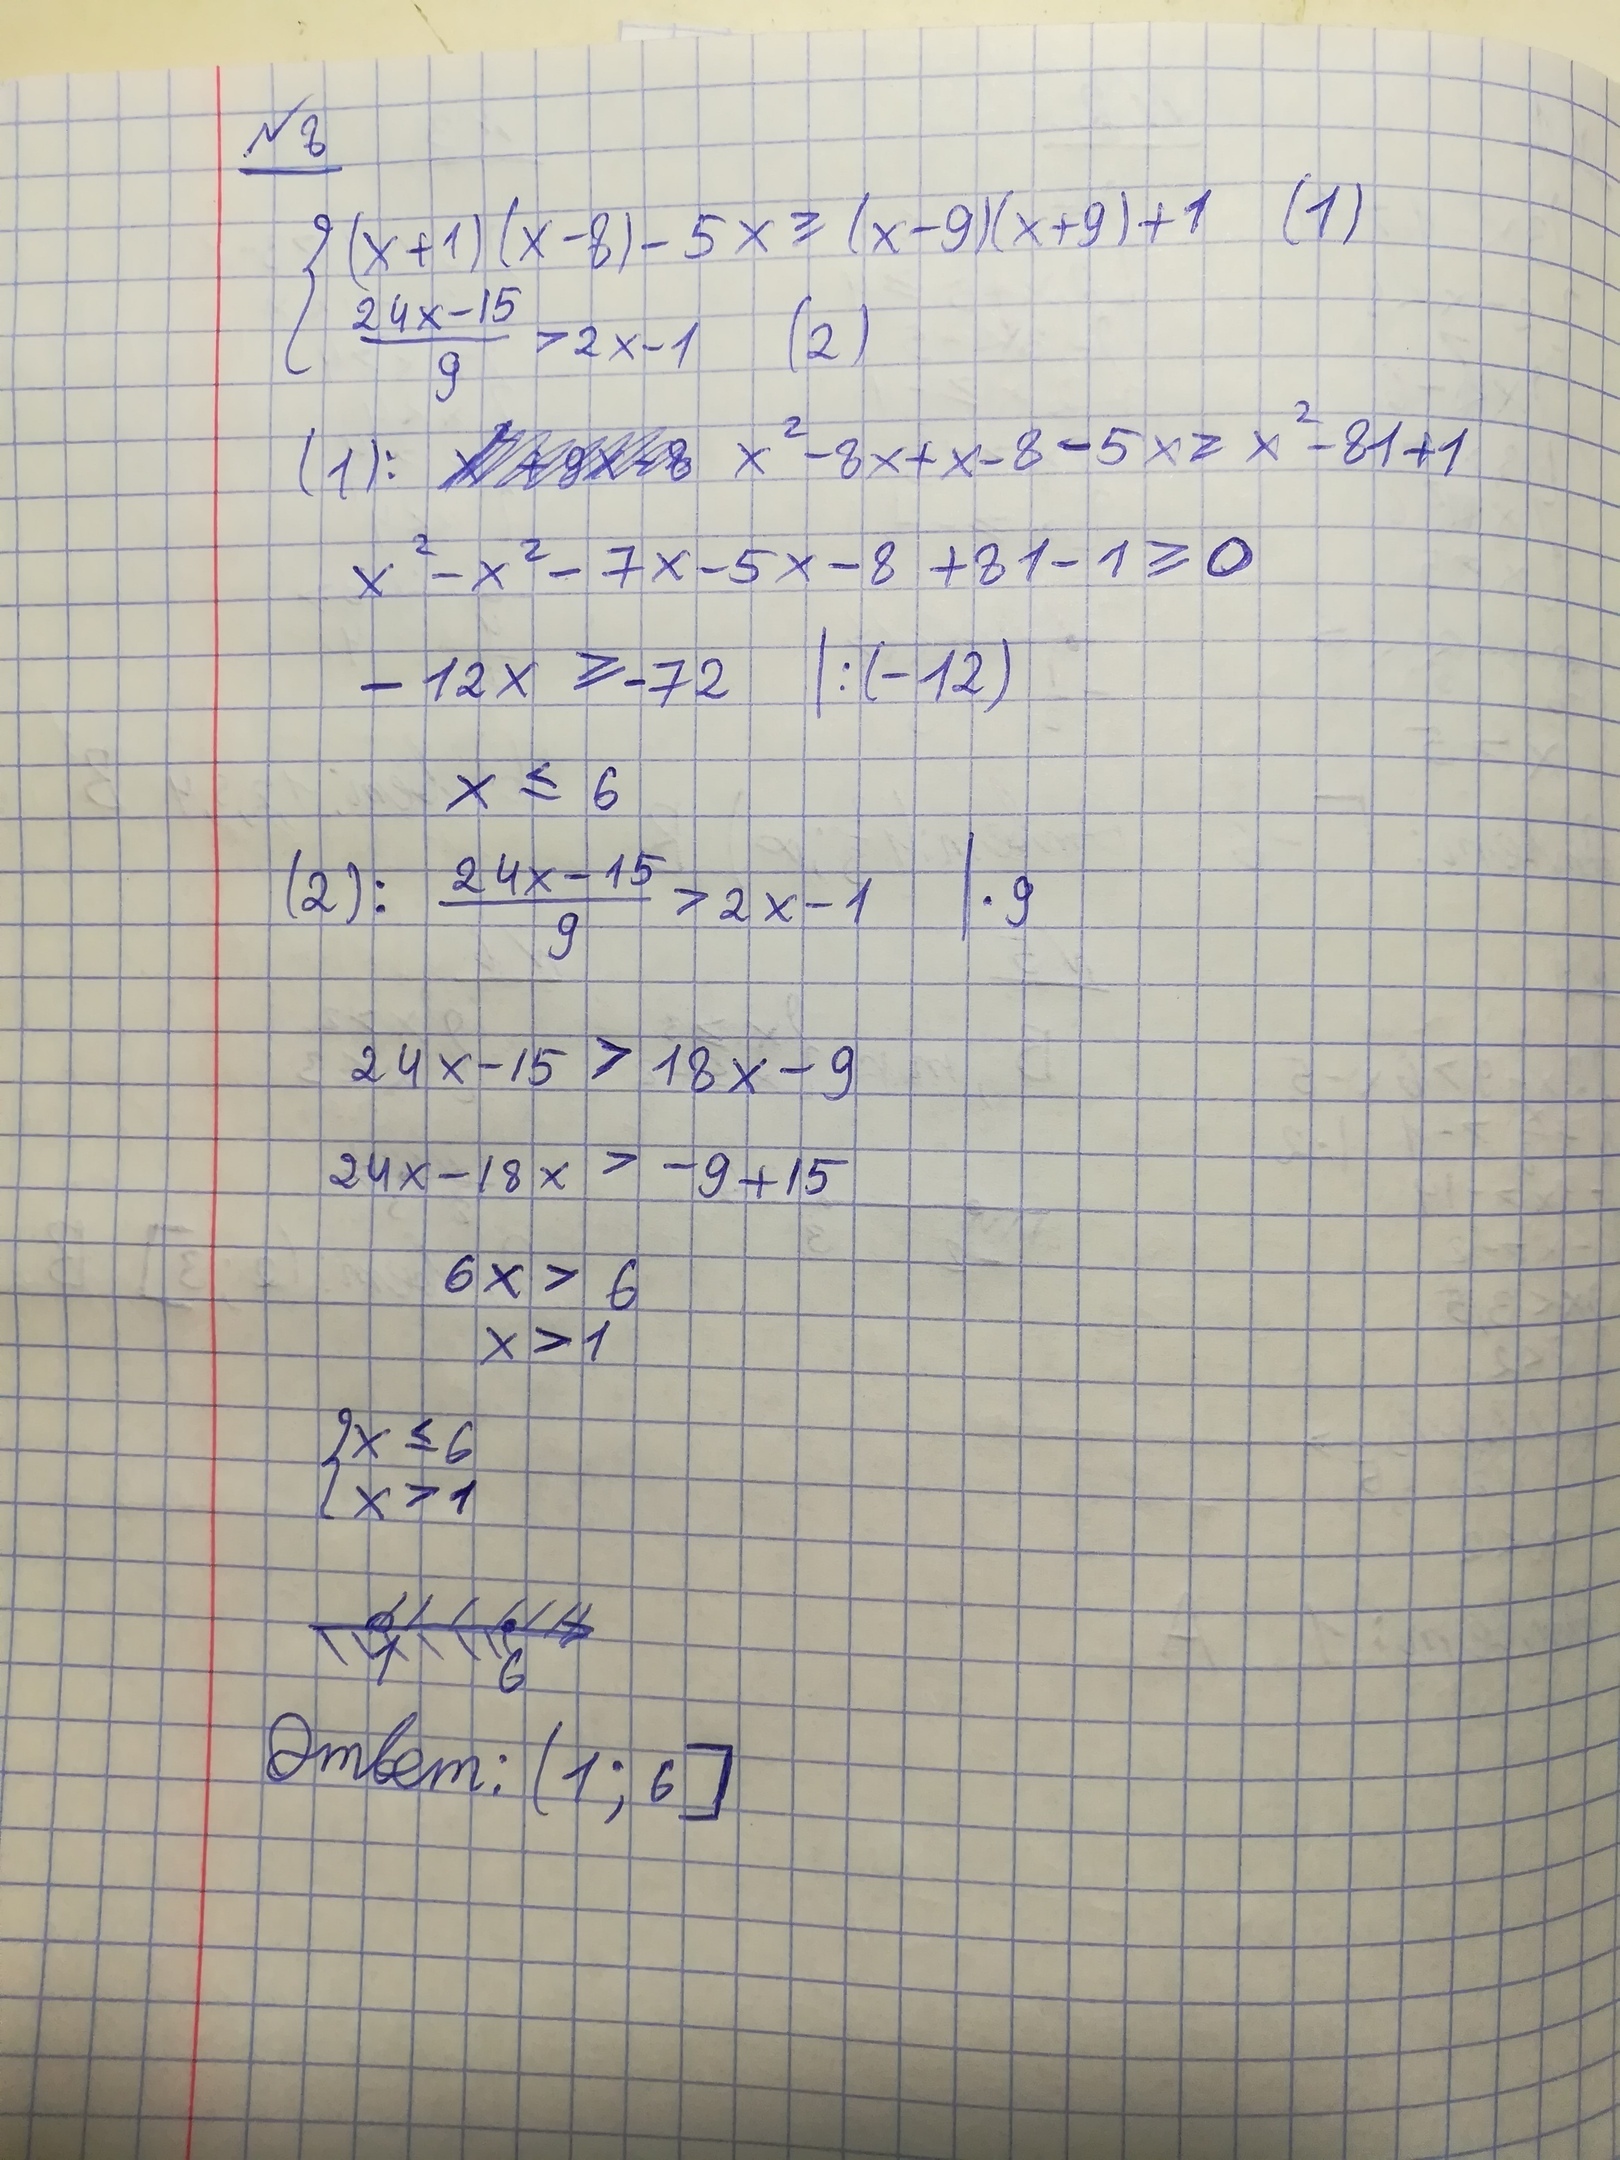 №8
(x+1)(x-8)-5x≥(x-9)(x+9)+1 (1)
24x-15/9 >2x-1 (2)
(1): x²-8x+x-8-5x≥x²-81+1
x²-x²-7x-5x-8+81-1≥0
-12x ≥-72 |:(-12)
x ≤ 6
(2): 24x-15/9 >2x-1 |·9
24x-15 > 18x-9
24x-18x > -9+15
6x > 6
x >1
{x ≤6
x >1
1 6
Ответ: (1; 6]